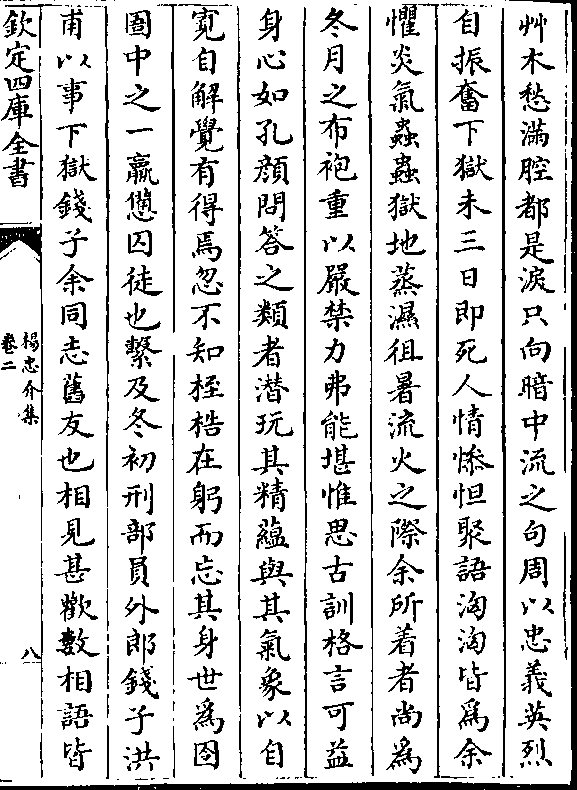 艸木愁滿腔都是淚只向暗中流之句周以忠義英烈
自振奮下獄未三日即死人情慘怛聚語洶洶皆爲余
懼炎氣蟲蟲獄地蒸濕徂暑流火之際余所着者尚爲
冬月之布袍重以嚴禁力弗能堪惟思古訓格言可益
身心如孔顔問答之類者潜玩其精蘊與其氣象以自
寛自解覺有得焉忽不知桎梏在躬而忘其身世爲囹
圄中之一羸憊囚徒也繫及冬初刑部員外郎錢子洪
甫以事下獄錢子余同志舊友也相見甚歡數相語皆
欽定四庫全書
楊忠介集
卷二
八